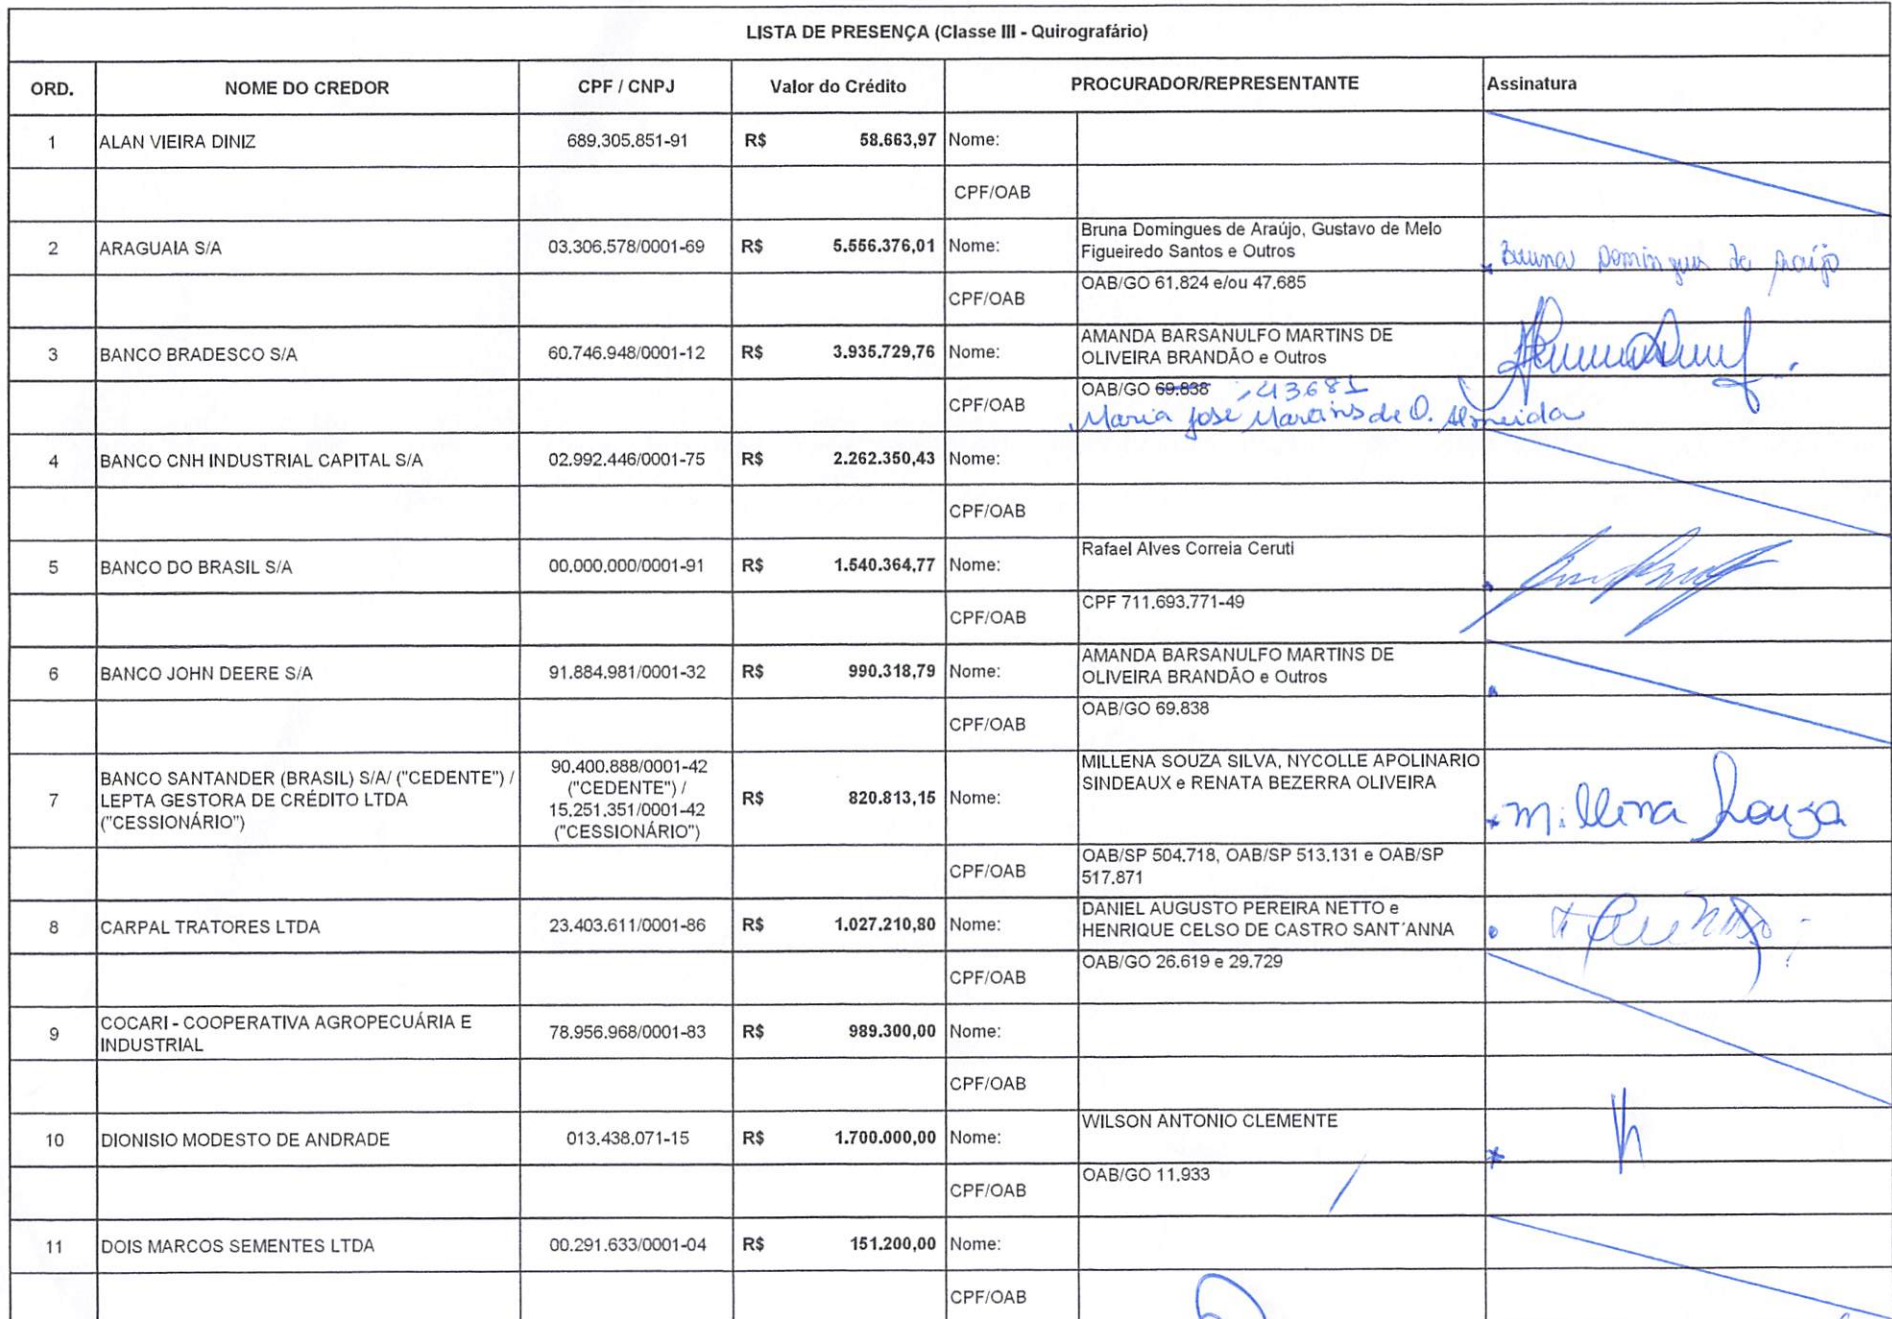 LISTA DE PRESENÇA (Classe III - Quirografário)
ORD. NOME DO CREDOR CPF / CNPJ Valor do Crédito PROCURADOR/REPRESENTANTE Assinatura
1 ALAN VIEIRA DINIZ 689.305.851-91 R$ 58.663,97 Nome:
CPF/OAB
2 ARAGUAIA S/A 03.306.578/0001-69 R$ 5.556.376,01 Nome: Bruna Domingues de Araújo, Gustavo de Melo
Figueiredo Santos e Outros
Bruna Domingues de Araújo
CPF/OAB OAB/GO 61.824 e/ou 47.685
3 BANCO BRADESCO S/A 60.746.948/0001-12 R$ 3.935.729,76 Nome: AMANDA BARSANULFO MARTINS DE
OLIVEIRA BRANDÃO e Outros
CPF/OAB OAB/GO 69.838 43681
Maria José Martins de O. Almeida
4 BANCO CNH INDUSTRIAL CAPITAL S/A 02.992.446/0001-75 R$ 2.262.350,43 Nome:
CPF/OAB
5 BANCO DO BRASIL S/A 00.000.000/0001-91 R$ 1.540.364,77 Nome: Rafael Alves Correia Ceruti
CPF/OAB CPF 711.693.771-49
6 BANCO JOHN DEERE S/A 91.884.981/0001-32 R$ 990.318,79 Nome: AMANDA BARSANULFO MARTINS DE
OLIVEIRA BRANDÃO e Outros
CPF/OAB OAB/GO 69.838
7 BANCO SANTANDER (BRASIL) S/A/ ("CEDENTE") /
LEPTA GESTORA DE CRÉDITO LTDA
("CESSIONÁRIO")
90.400.888/0001-42
("CEDENTE") /
15.251.351/0001-42
("CESSIONÁRIO")
R$ 820.813,15 Nome: MILLENA SOUZA SILVA, NYCOLLE APOLINARIO
SINDEAUX e RENATA BEZERRA OLIVEIRA
Millena Souza
CPF/OAB OAB/SP 504.718, OAB/SP 513.131 e OAB/SP
517.871
8 CARPAL TRATORES LTDA 23.403.611/0001-86 R$ 1.027.210,80 Nome: DANIEL AUGUSTO PEREIRA NETTO e
HENRIQUE CELSO DE CASTRO SANT´ANNA
CPF/OAB OAB/GO 26.619 e 29.729
9 COCARI - COOPERATIVA AGROPECUÁRIA E
INDUSTRIAL
78.956.968/0001-83 R$ 989.300,00 Nome:
CPF/OAB
10 DIONISIO MODESTO DE ANDRADE 013.438.071-15 R$ 1.700.000,00 Nome: WILSON ANTONIO CLEMENTE
CPF/OAB OAB/GO 11.933
11 DOIS MARCOS SEMENTES LTDA 00.291.633/0001-04 R$ 151.200,00 Nome:
CPF/OAB